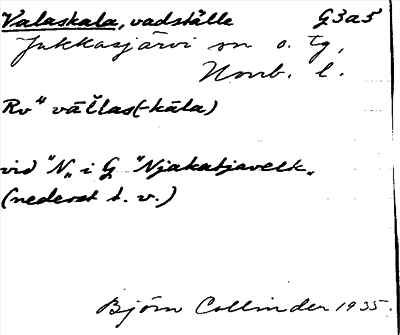 Valaskala, vadställe G3a5
Jukkasjärvi sn o. tg,
Norrb. l.
Rv" vāllas(-kāla)
vid "N„ i G "Njakatjavelk„
(nederst t. v.)
Björn Collinder 1935.